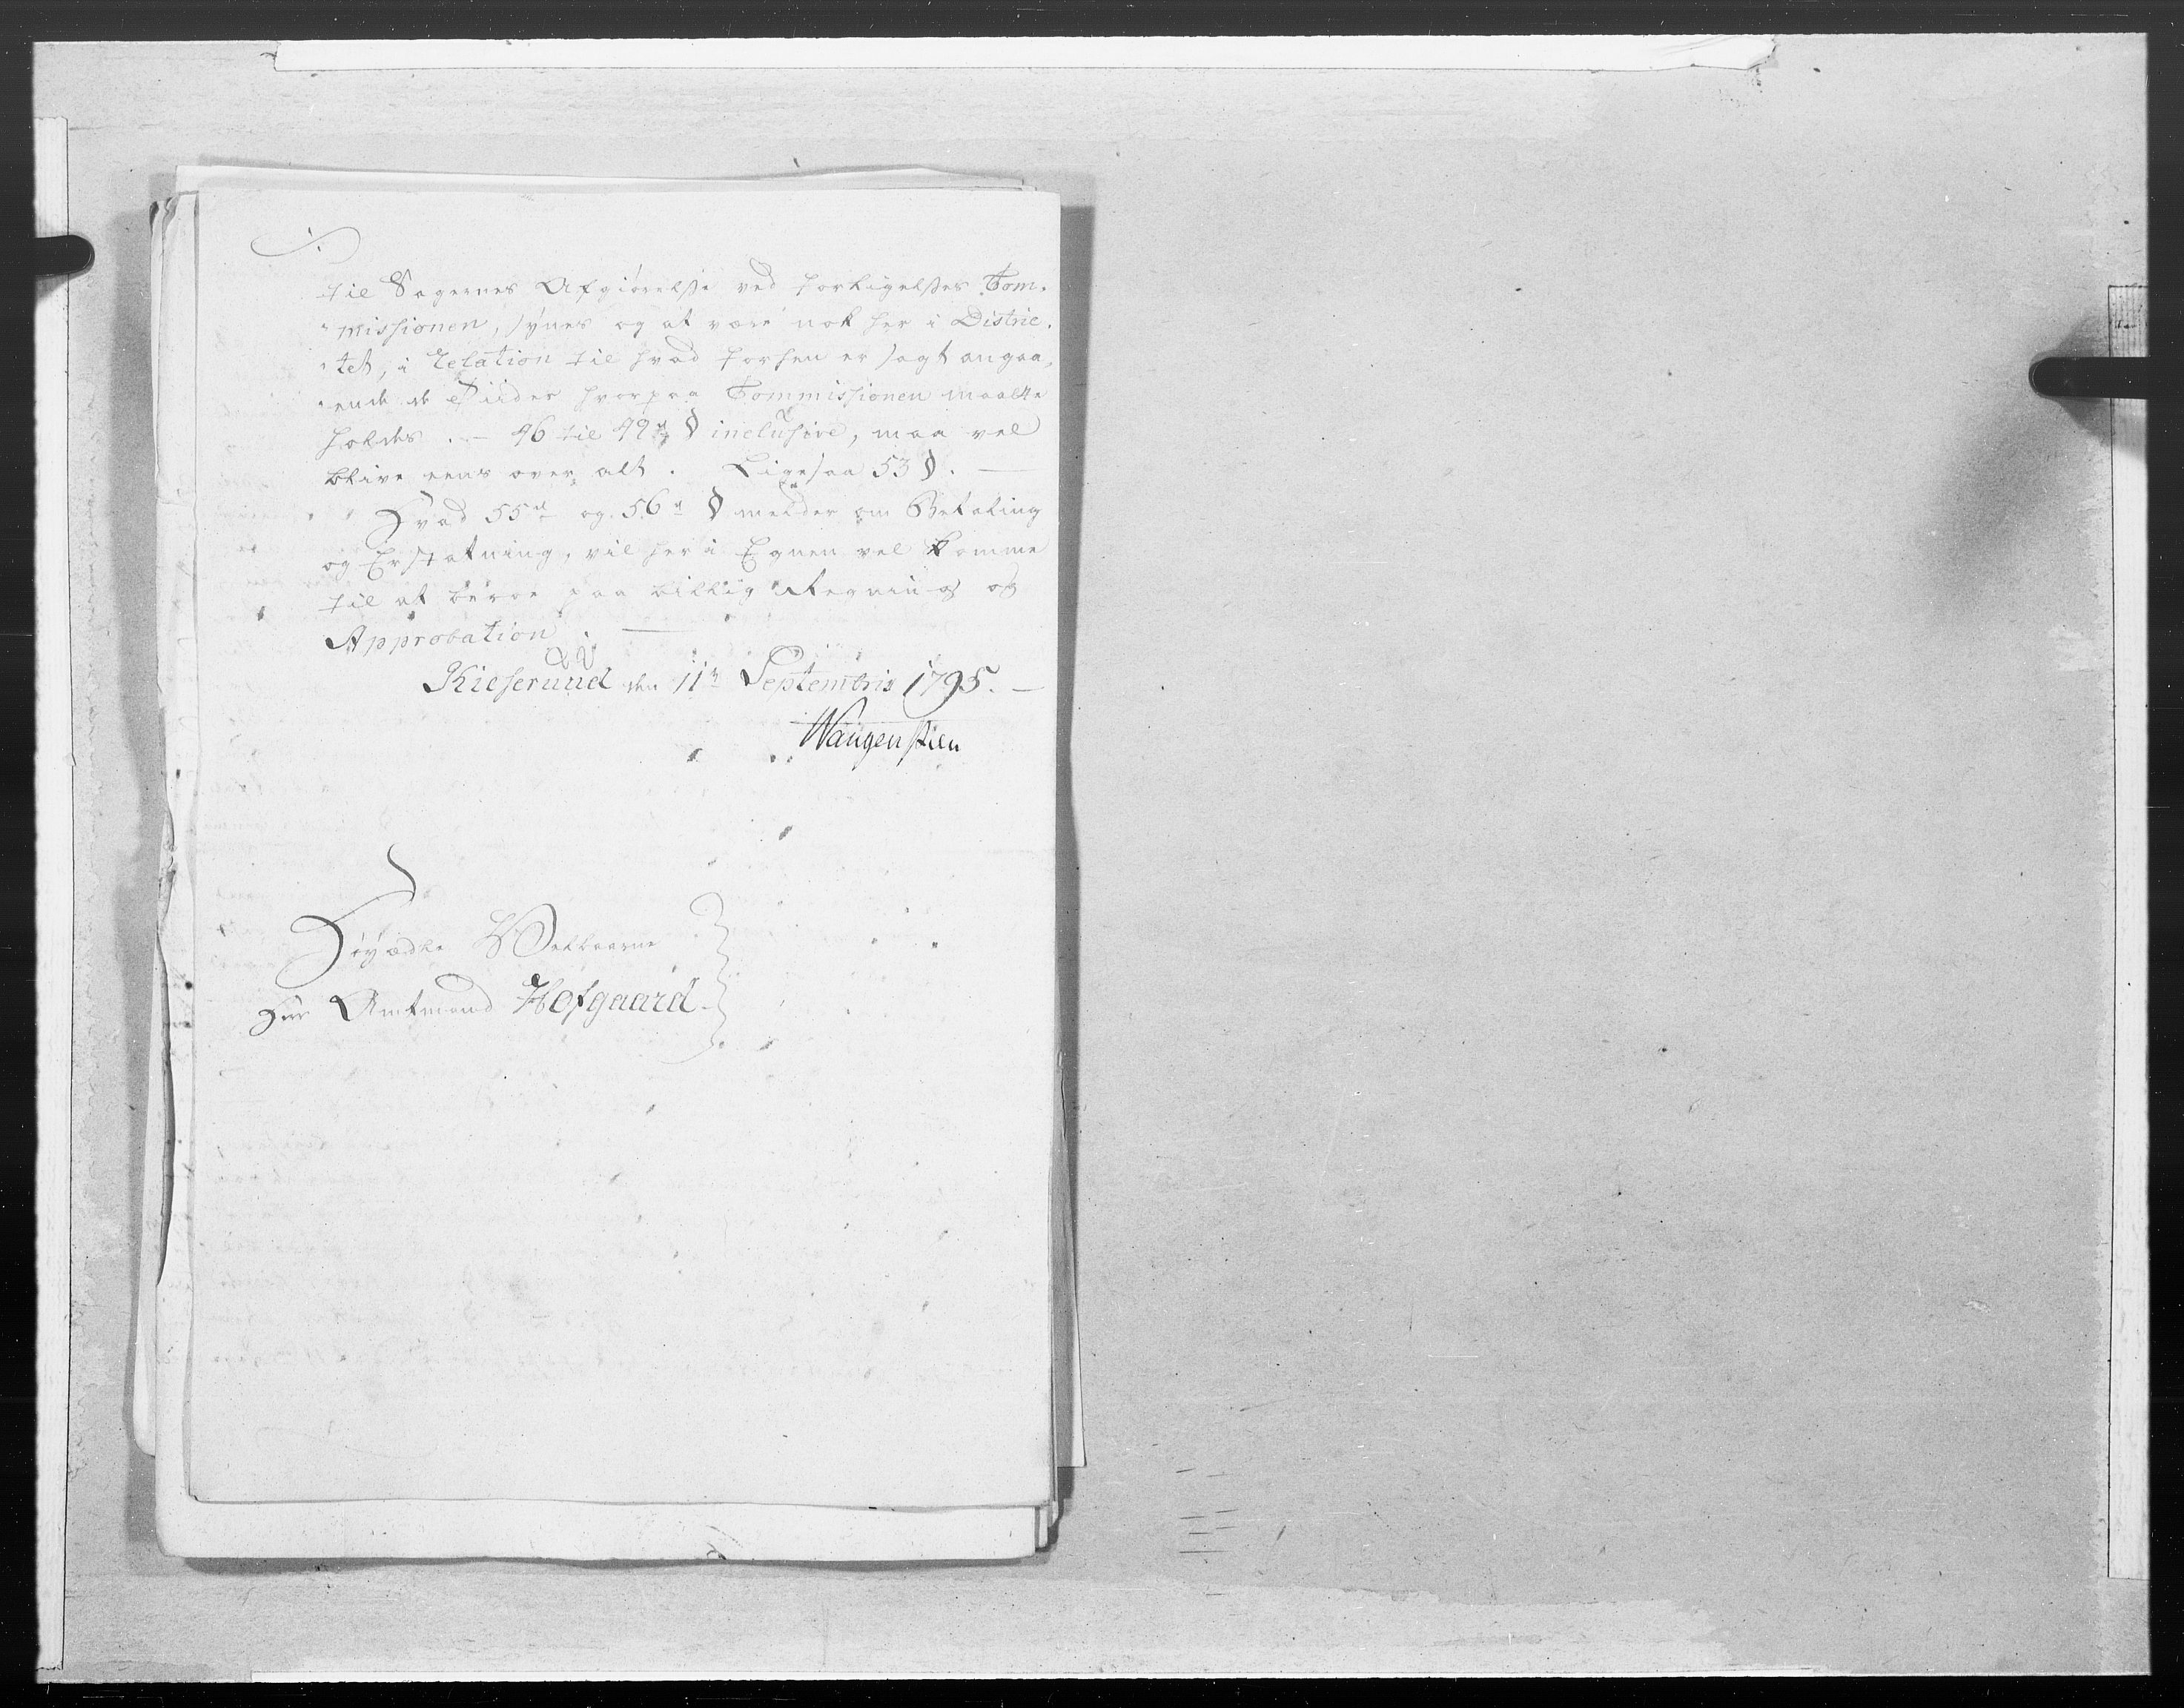 til Sagernes Afgiörelse ved Forligelses Com-
missionen, synes og at være nok her i Distric-
tet, i Relation til hvad forhen er sagt angaa-
ende de Stæder hvorpaa Commissionen maatte
holdes. - 46 til 49de § inclusive, maa vel
blive eens over alt. Ligesaa 53 §. -
Hvad 55de og 56de § melder om Betaling
og Erstatning, vil her i Egnen vel komme
til at beroe paa billig Utegning og
Approbation -
Kieseruud den 11te Septembris 1795. -
Wangensteen
Höyædle Velbaarne
Herr Amtmand Hofgaard